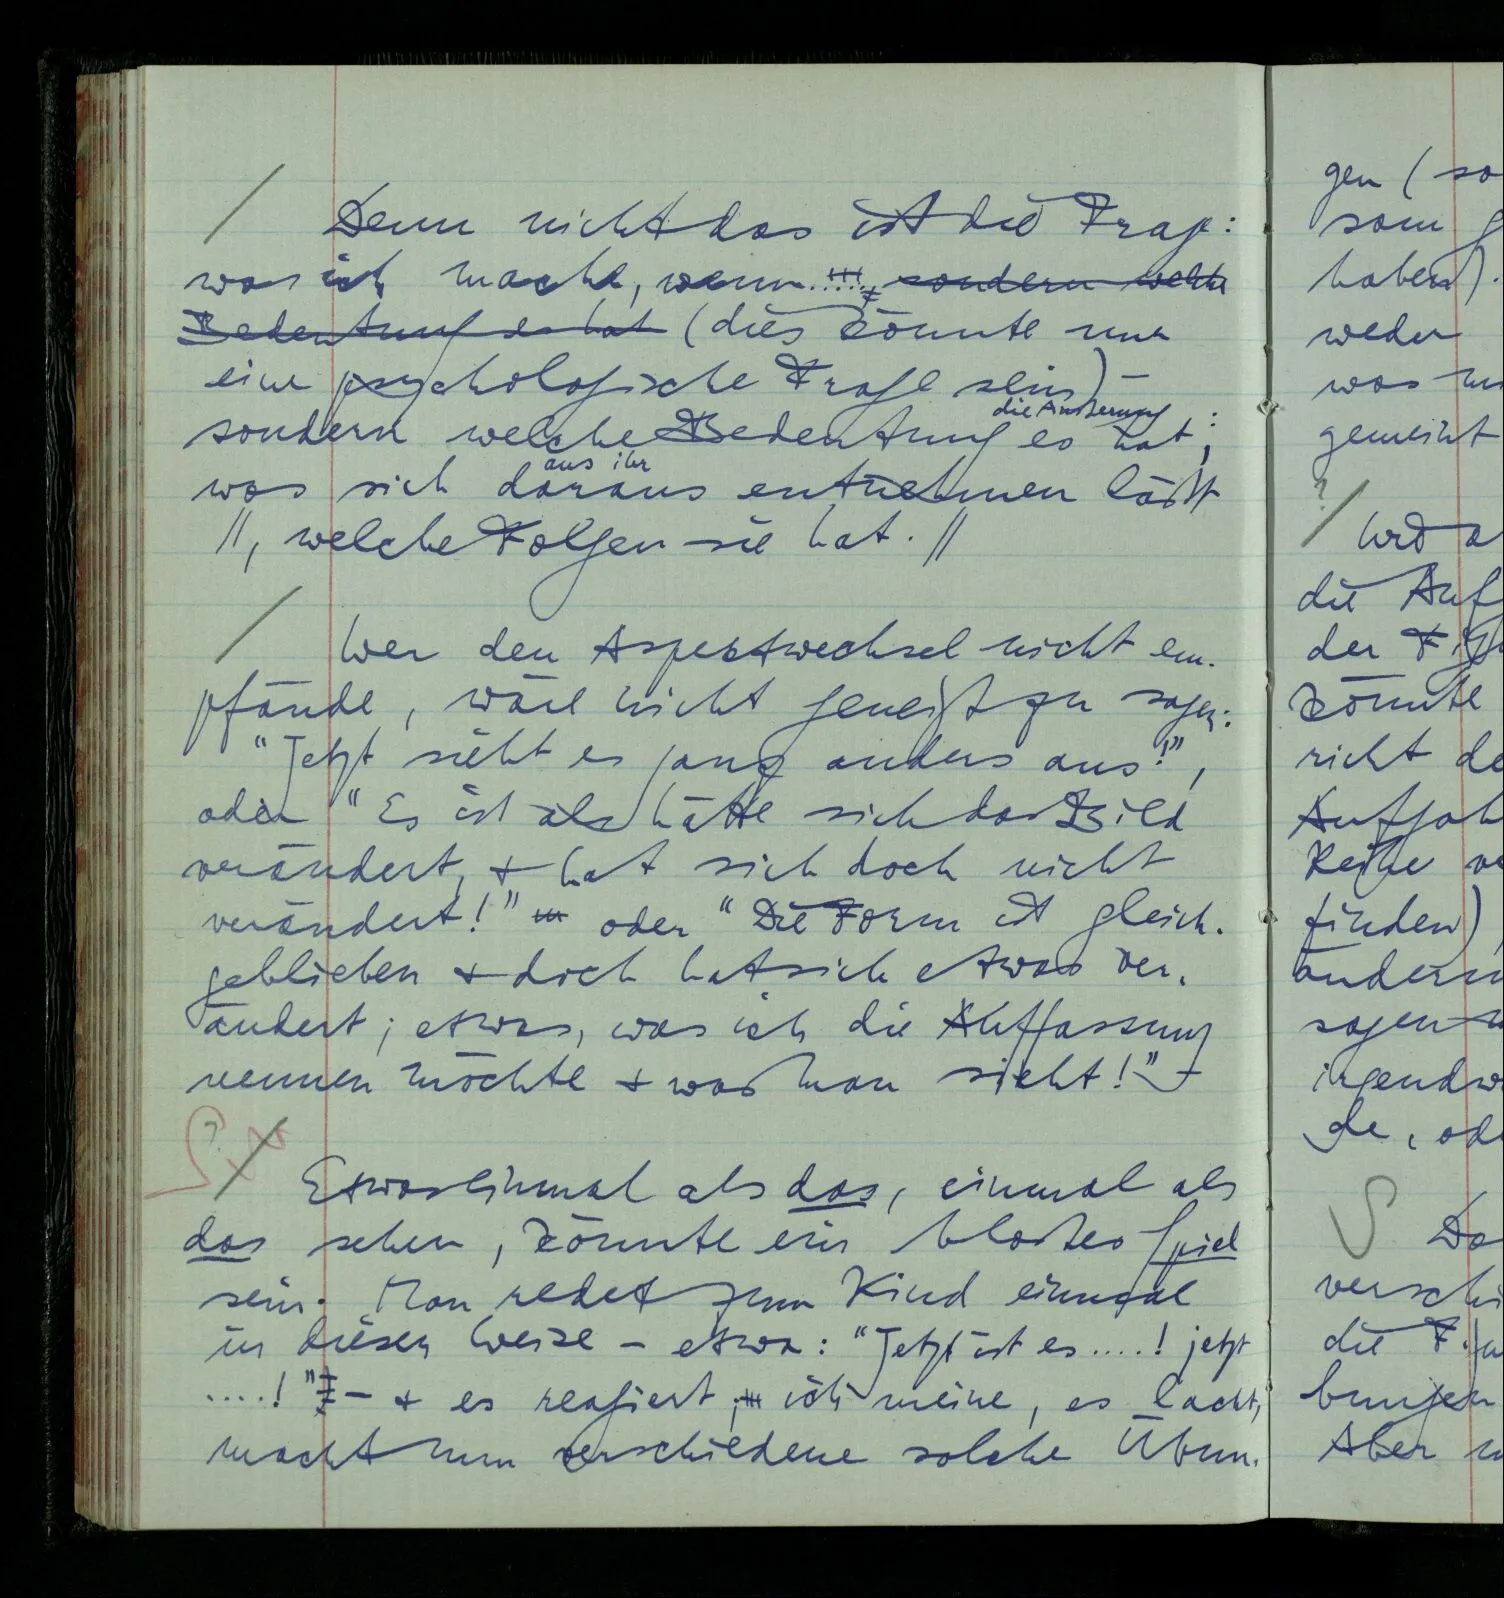 / Denn nicht das ist die Frage:
was ich mache, wenn...., sondern welche
Bedeutung es hat (dies könnte nur
eine psychologische Frage sein) –
die Äußerung
sondern welche Bedeutung es hat;
aus ihr
was sich daraus entnehmen läßt
//, welche Folgen sie hat. //
/ Wer den Aspektwechsel nicht em-
pfände, wäre nicht geneigt zu sagen:
"Jetzt sieht es ganz anders aus!",
oder "Es ist als hätte sich das Bild
verändert, + hat sich doch nicht
verändert!" oder "Die Form ist gleich-
geblieben + doch hat sich etwas ver-
ändert; etwas, was ich die Auffassung
nennen möchte + was man sieht!" –
? / Etwas einmal als das, einmal als
das sehen, könnte ein bloßes Spiel
sein. Man redet zum Kind einmal
in dieser Weise – etwa: "Jetzt ist es ....! jetzt
....!" – + es reagiert; ich meine, es lacht,
macht nun verschiedene solche Übun-
gen (so
som
haben).
weder
was
gemeint
? / Und
die Auf
der
könnte
nicht de
Aufgab
Reihe
finden),
ändern
sagen
irgendw
de, od
S Da
versch
die
bungen
Aber